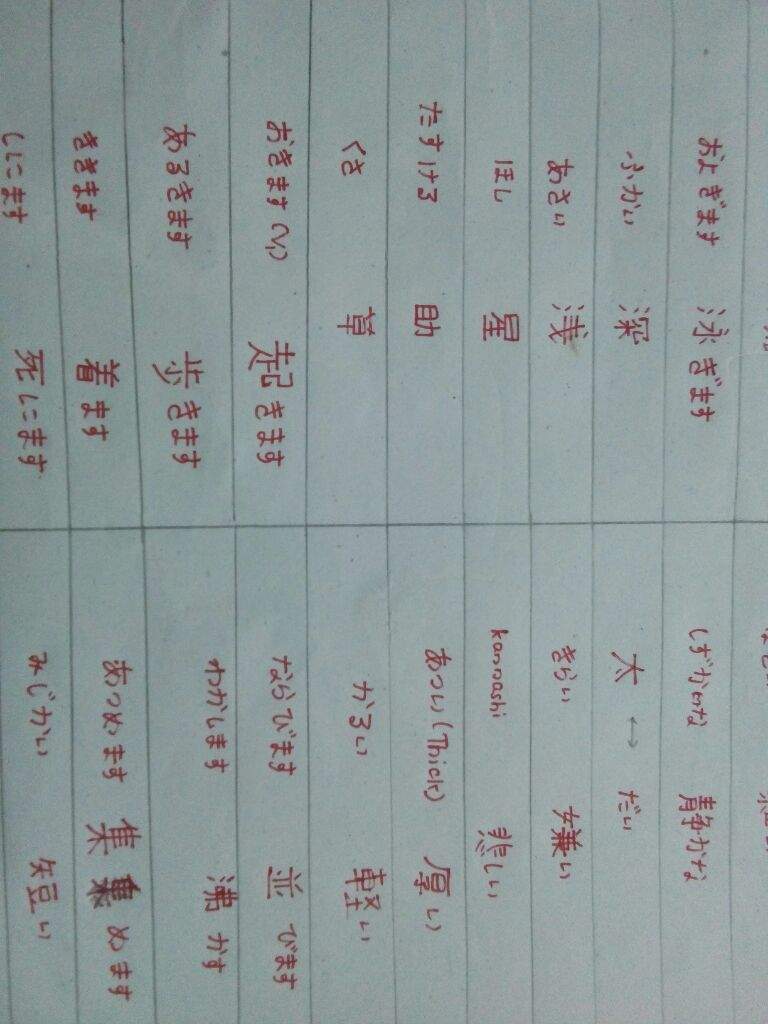 およぎます 泳ぎます しずかな 静かな
ふかい 深 大 ↔ だい
あさい 浅 きらい 嫌い
ほし 星 kannashi 悲しい
たすける 助 あつい(Thick) 厚い
くさ 草 かるい 軽い
おきます(V1) 起きます ならびます 並びます
あるきます 歩きます わかします 沸かす
ききます 着ます あつめます 集 めます
しにます 死にます みじかい 短い